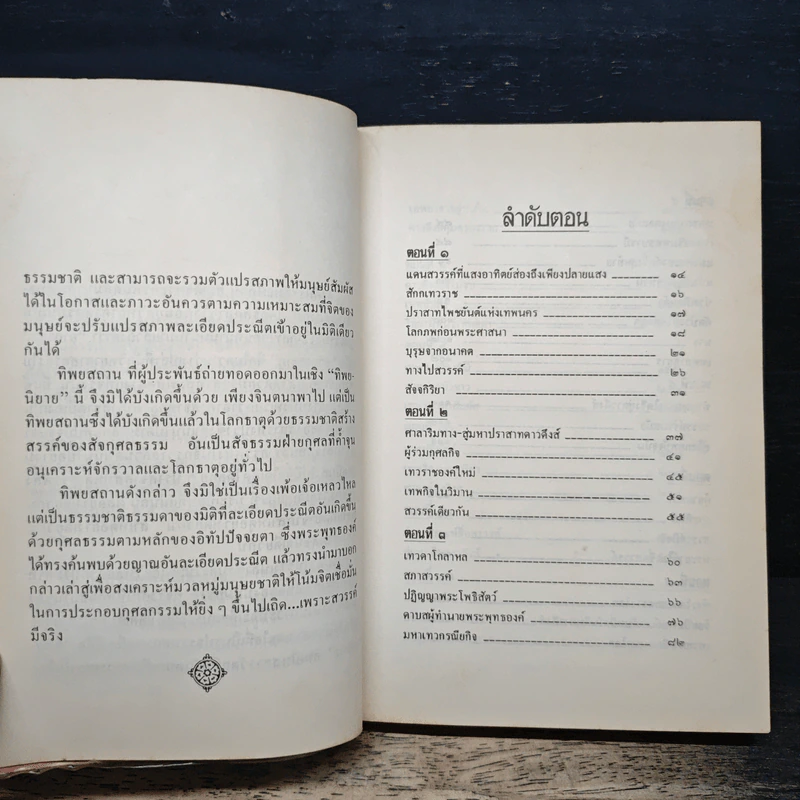 ธรรมชาติ และสามารถจะรวมตัวแปรสภาพให้มนุษย์สัมผัส
ได้ในโอกาสและภาวะอันควรตามความเหมาะสมที่จิตของ
มนุษย์จะปรับแปรสภาพละเอียดประณีตเข้าอยู่ในมิติเดียว
กันได้
ทิพยสถาน ที่ผู้ประพันธ์ถ่ายทอดออกมาในเชิง “ทิพย-
นิยาย” นี้ จึงมิได้บังเกิดขึ้นด้วย เพียงจินตนาพาไป แต่เป็น
ทิพยสถานซึ่งได้บังเกิดขึ้นแล้วในโลกธาตุด้วยธรรมชาติสร้าง
สรรค์ของสัจกุศลธรรม อันเป็นสัจธรรมฝ่ายกุศลที่ค้ำจุน
อนุเคราะห์จักรวาลและโลกธาตุอยู่ทั่วไป
ทิพยสถานดังกล่าว จึงมิใช่เป็นเรื่องเพ้อเจ้อเหลวไหล
แต่เป็นธรรมชาติธรรมดาของมิติที่ละเอียดประณีตอันเกิดขึ้น
ด้วยกุศลธรรมตามหลักของอิทัปปัจจยตา ซึ่งพระพุทธองค์
ได้ทรงค้นพบด้วยญาณอันละเอียดประณีต แล้วทรงนำมาบอก
กล่าวเล่าสู่เพื่อสงเคราะห์มวลหมู่มนุษยชาติให้โน้มจิตเชื่อมั่น
ในการประกอบกุศลกรรมให้ยิ่ง ๆ ขึ้นไปเถิด...เพราะสวรรค์
มีจริง
ลำดับตอน
ตอนที่ ๑
แดนสวรรค์ที่แสงอาทิตย์ส่องถึงเพียงปลายแสง ๑๔
สักกเทวราช ๑๖
ปราสาทไพชยันต์แห่งเทพนคร ๑๗
โลกภพก่อนพระศาสนา ๑๘
บุรุษจากอนาคต ๒๑
ทางไปสวรรค์ ๒๖
สัจจกิริยา ๓๑
ตอนที่ ๒
ศาลาริมทาง-สู่มหาปราสาทดาวดึงส์ ๓๗
ผู้ร่วมกุศลกิจ ๔๑
เทวราชองค์ใหม่ ๔๕
เทพกิจในวิมาน ๕๑
สวรรค์เดียวกัน ๕๕
ตอนที่ ๓
เทวดาโกลาหล ๖๐
สภาสวรรค์ ๖๓
ปฏิญญาพระโพธิสัตว์ ๖๖
ดาบสผู้ทำนายพระพุทธองค์ ๗๖
มหาเทวกรณียกิจ ๘๒